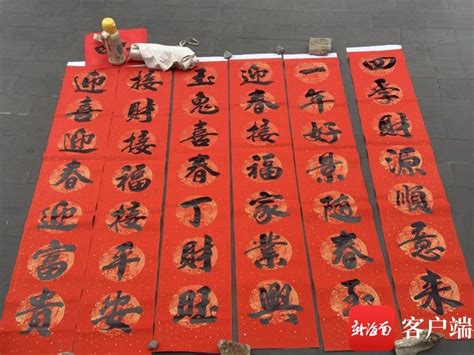 四季財源順意来
一年好景隨春
迎春接福家業興
玉兔喜春丁財旺
接財接福接平安
迎喜迎春迎富貴
新海南 客户端